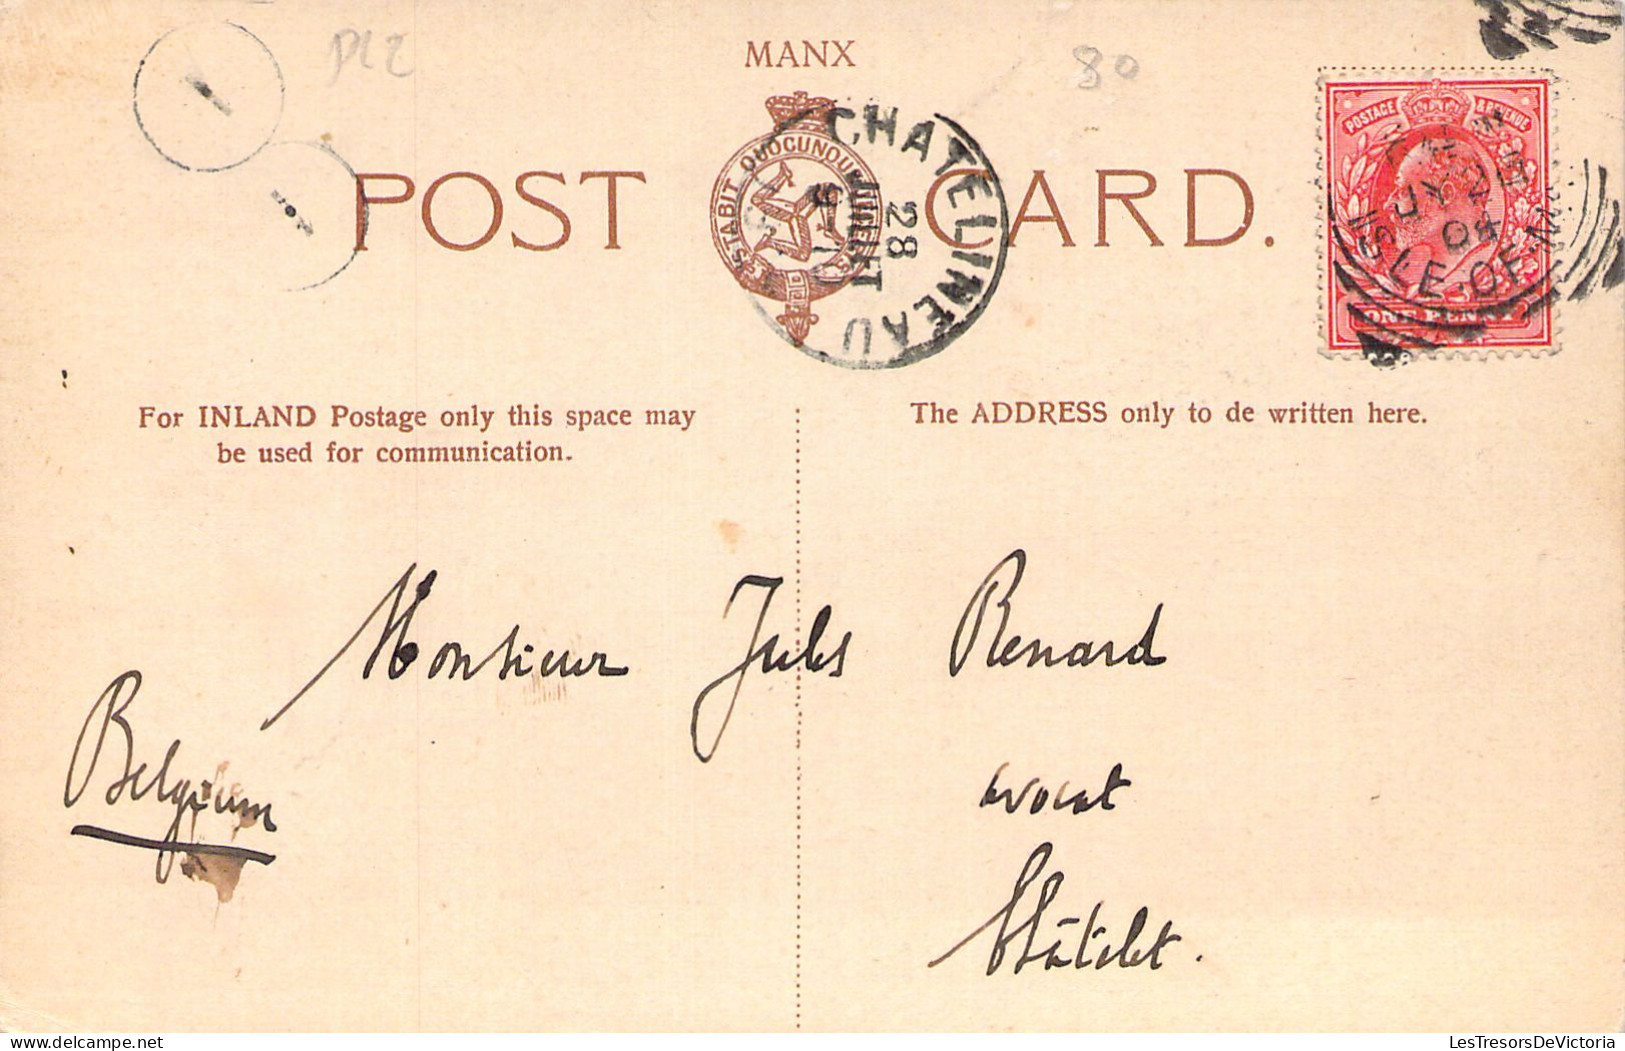 DLZ
MANX
80
POST CARD.
STABIT QUOCUNQUE
CHATELINEAU
28
JUILT
9-10
POSTAGE & REVENUE
ISLE OF
JY
ONE PENNY
For INLAND Postage only this space may
be used for communication.
The ADDRESS only to de written here.
Monsieur Jules Renard
Belgium
avocat
Châtelet.
LesTresorsDeVictoria.com